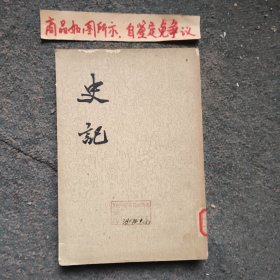 商品如图所示，自鉴定免争议
史
記